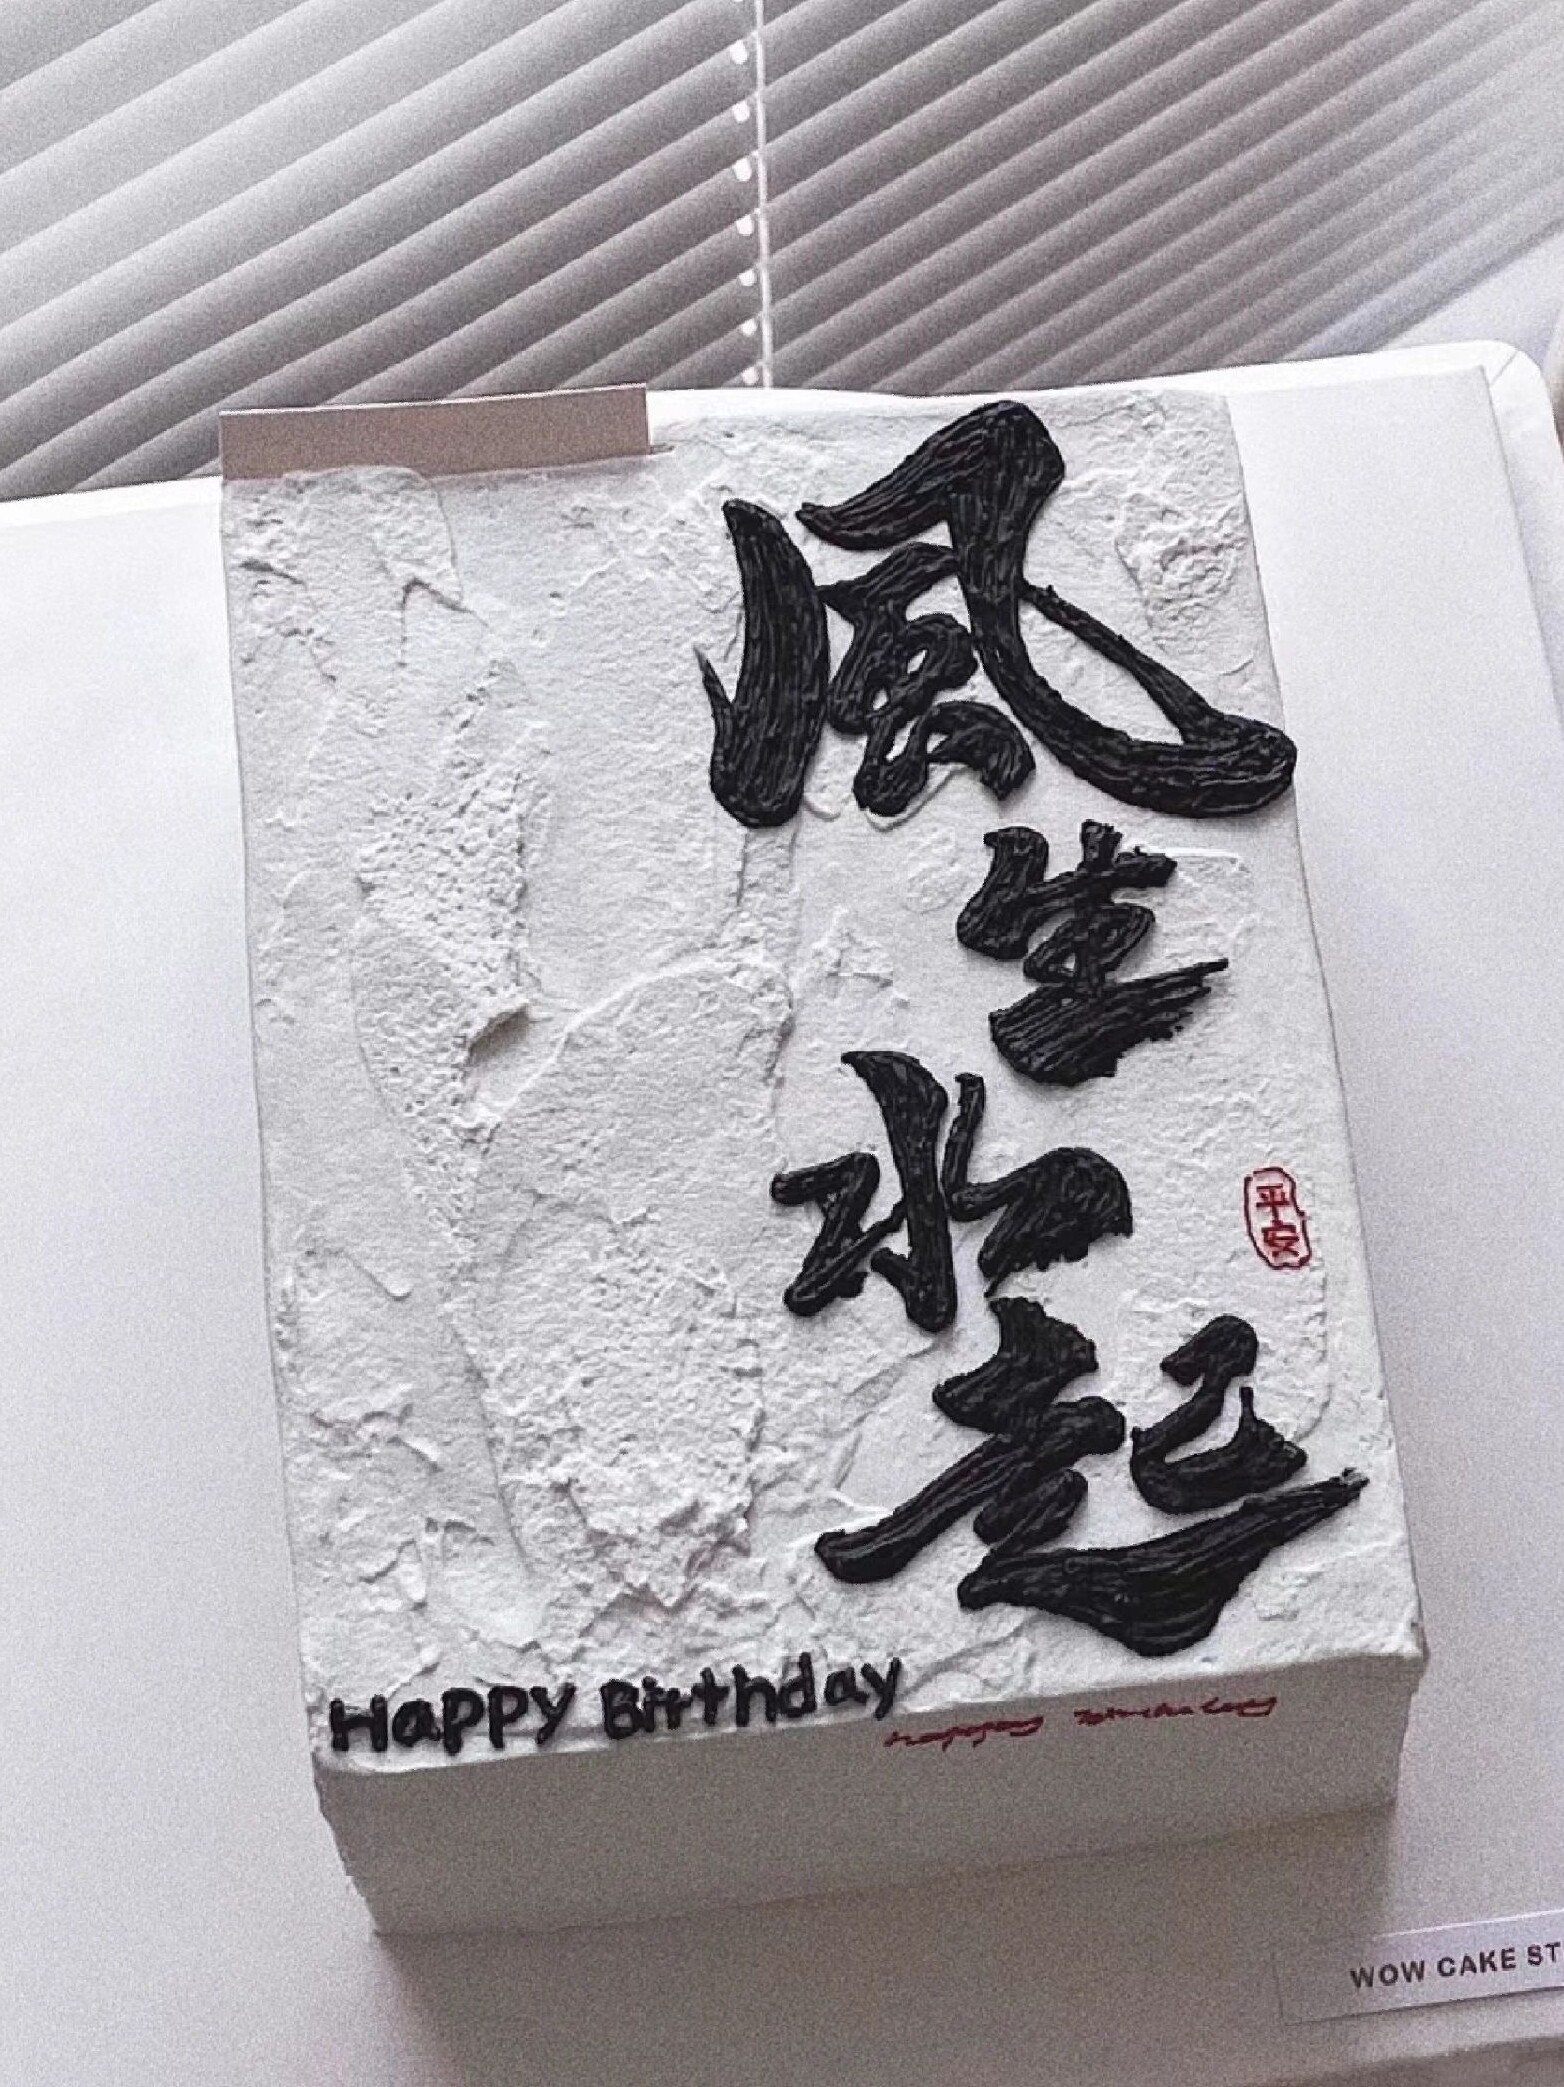 風生水起
平安
Happy Birthday
Happy Birthday
WOW CAKE ST